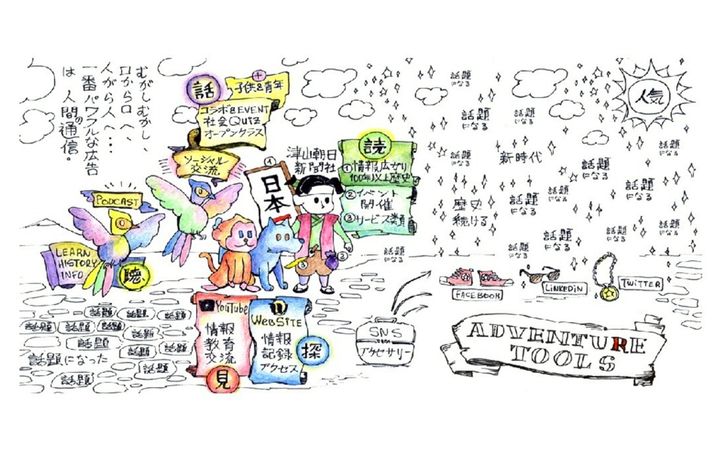 むかしむかし、
口から口へ、
人から人へ…
一番パワフルな広告
は人間の通信。
話
+
子供&青年
コラボEVENT
社会QUIZ
オープンクラス
ソーシャル
交流
PODCAST
LEARN
HISTORY
INFO
聴
日本一
津山朝日
新聞社
読
①情報広がり
100年以上歴史
②イベント
開催
③サービス業
YouTube
情報
教育
交流
見
WEBSITE
情報
記録
アクセス
探
話題
話題
話題
話題
話題
話題
話題
話題
話題になった
話題
話題
話題
SNS
アクセサリー
人気
話題
になる
話題
になる
話題
になる
話題
になる
新時代
話題
になる
話題
になる
歴史
続ける
話題
になる
話題
になる
話題
になる
話題
になる
FACEBOOK
LINKEDIN
TWITTER
ADVENTURE
TOOLS